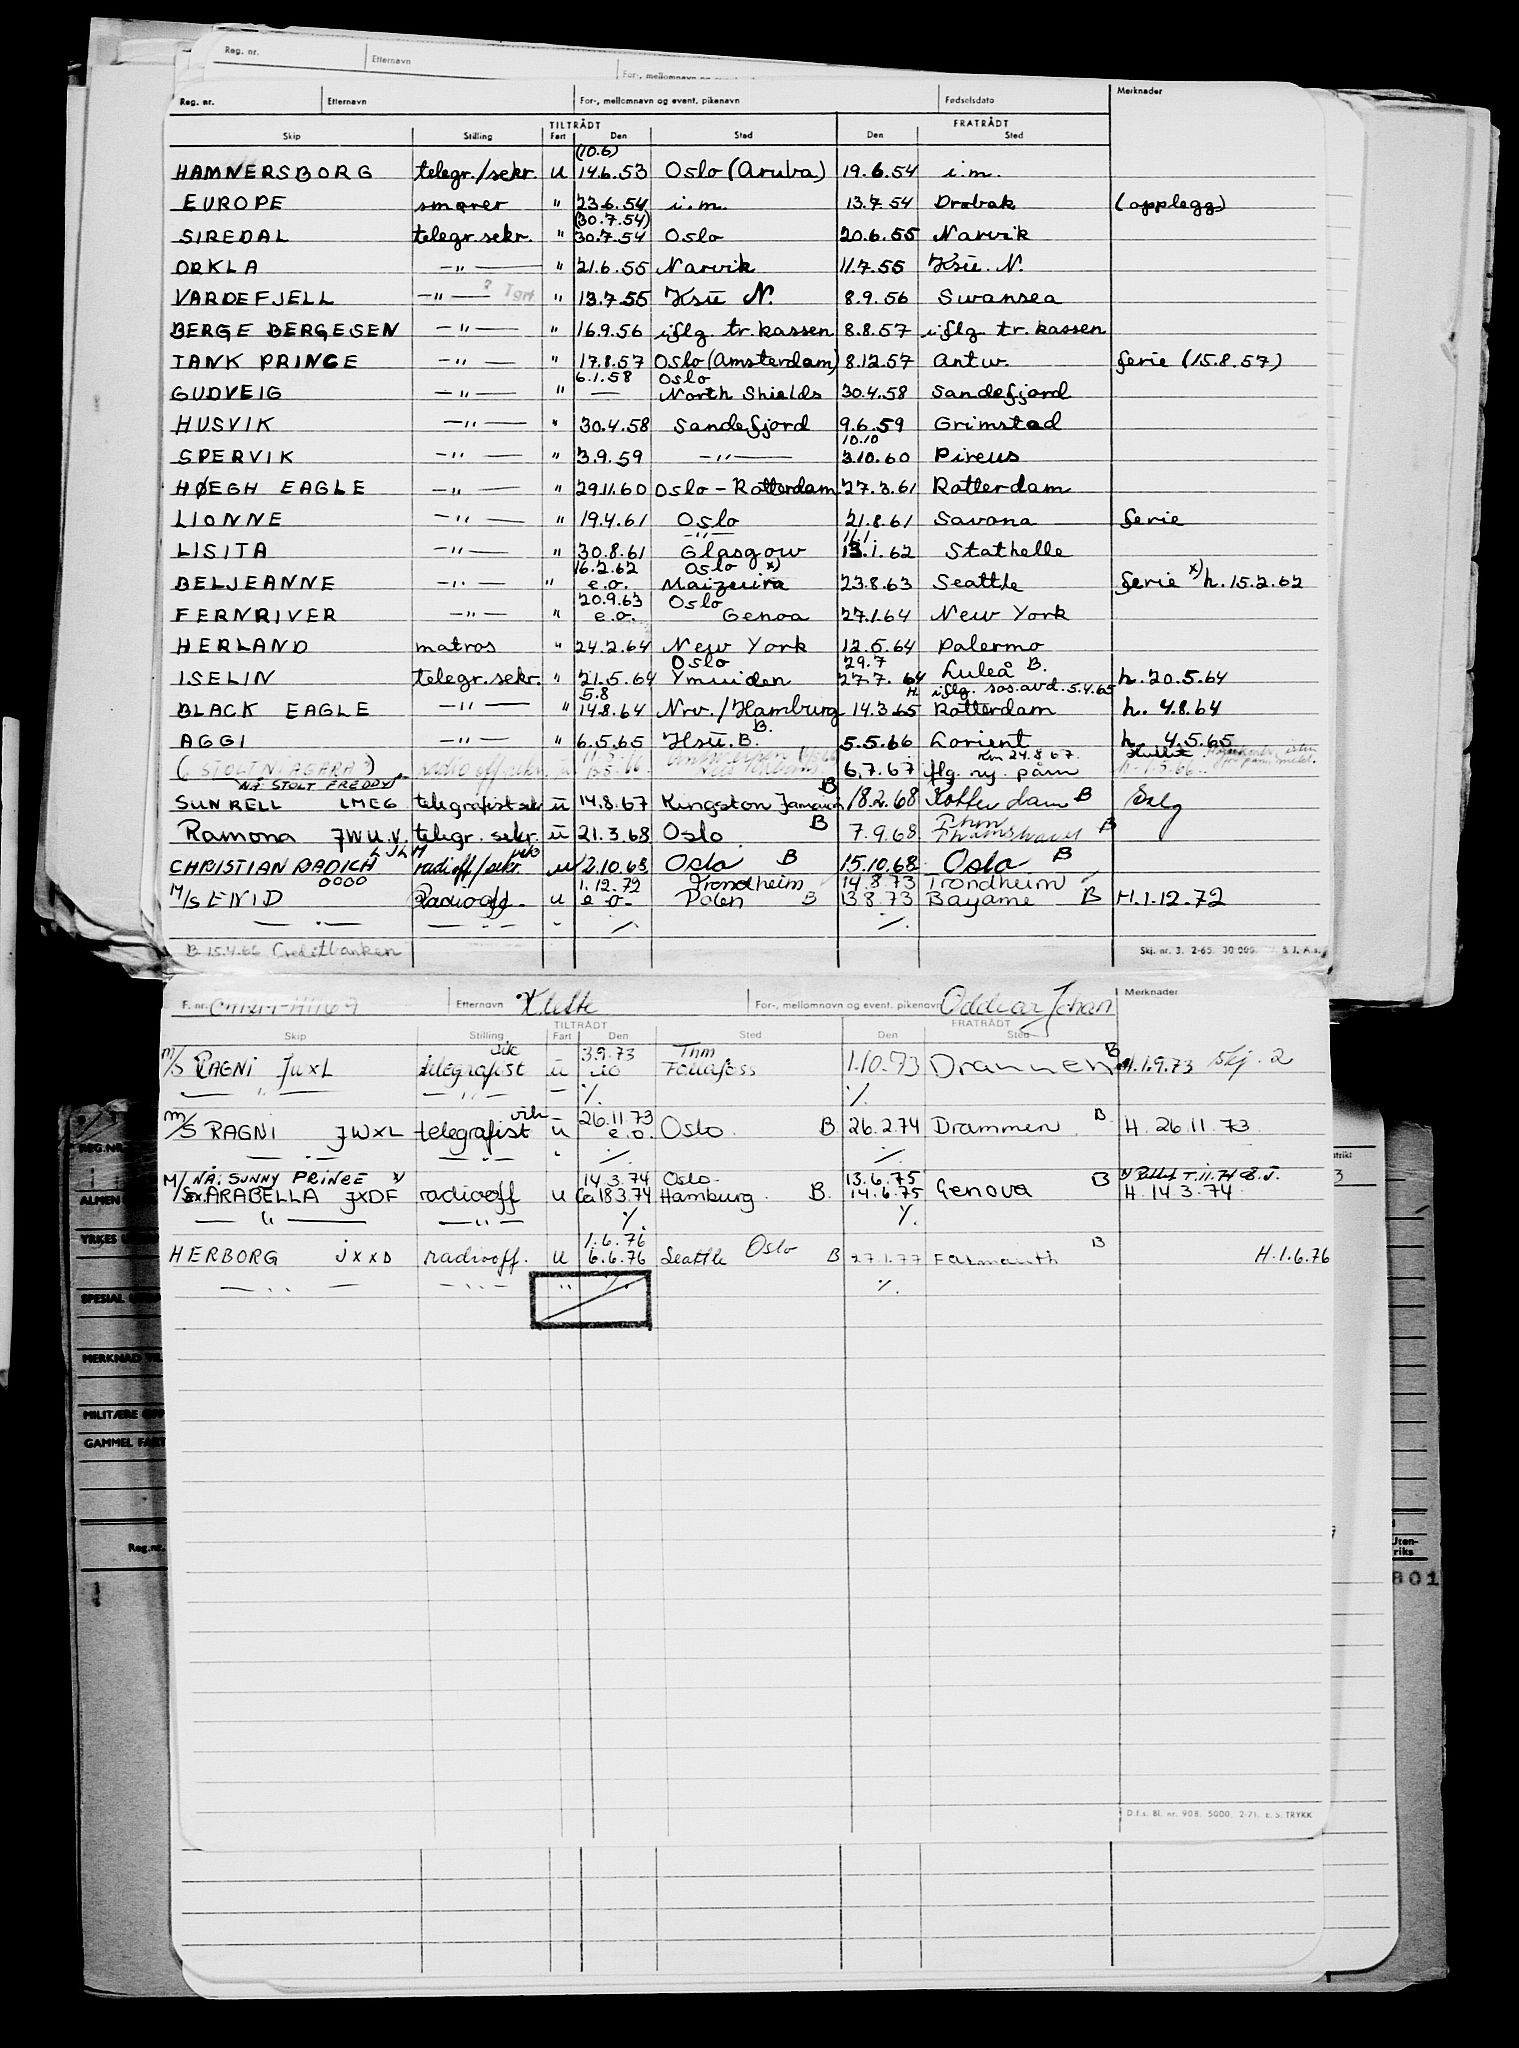 Reg. nr. Etternavn For-, mellomnavn og event.
Reg. nr. Etternavn For-, mellomnavn og event. pikenavn Fødselsdato Merknader
TILTRÅDT FRATRÅDT
Skip Stilling Fart Den Sted Den Sted
(10.6)
HAMMERSBORG telegr./sekr. u 14.6.53 Oslo (Aruba) 19.6.54 i.m.
EUROPE smører " 23.6.54 i.m. 13.7.54 Drøbak (opplegg)
(30.7.54)
SIREDAL telegr.sekr. " 30.7.54 Oslo 20.6.55 Narvik
ORKLA —"— " 21.6.55 Narvik 11.7.55 Ksü. N.
VARDEFJELL —"— ? Tgrf. " 13.7.55 Ksü N. 8.9.56 Swansea
BERGE BERGESEN —"— " 16.9.56 iflg. tr. kassen 8.8.57 iflg. tr. kassen
TANK PRINCE —"— " 17.8.57 Oslo (Amsterdam) 8.12.57 Antw. ferie (15.8.57)
6.1.58 Oslo
GUDVEIG —"— " — North Shields 30.4.58 Sandefjord
HUSVIK —"— " 30.4.58 Sandefjord 9.6.59 Grimstad
10.10
SPERVIK —"— " 3.9.59 —"— 3.10.60 Pireus
HØEGH EAGLE —"— " 29.11.60 Oslo - Rotterdam 27.3.61 Rotterdam
LIONNE —"— " 19.4.61 Oslo 21.8.61 Savona ferie
—"— 11.1
LISITA —"— " 30.8.61 Glasgow 13.1.62 Stathelle
16.2.62 Oslo x)
BELJEANNE —"— " e.o. Maizuru 23.8.63 Seattle ferie x) h. 15.2.62
20.9.63 Oslo
FERNRIVER —"— " e.o. Genoa 27.1.64 New York
HERLAND matros " 24.2.64 New York 12.5.64 Palermo
Oslo 29.7
ISELIN telegr.sekr. " 21.5.64 Ymuiden 27.7.64 Luleå B. h. 20.5.64
5.8 H iflg. sos.avd. 5.4.65
BLACK EAGLE —"— " 14.8.64 Nrv./Hamburg 14.3.65 Rotterdam h. 4.8.64
AGGI —"— " 6.5.65 Hsü. B. B. 5.5.66 Lorient h. 4.5.65
Km 24.8.67
(STOLT NIAGARA) 6.7.67 flg. ny. påm
NÅ: STOLT FREDDY
SUNRELL LMEG telegrafist ü 14.8.67 Kingston Jamaica B 18.2.68 Rotterdam B
Ramona JWUV telegr. sekr. ü 21.3.68 Oslo B 7.9.68 Thamshavn B
LJLM
CHRISTIAN RADICH radioff/sekr. u 2.10.68 Oslo B 15.10.68 Oslo B
0000 1.12.72 Trondheim 14.8.73 Trondheim
M/S ENID Radiooff. u e-o- Polen B 13.8.73 Bayame B H.1.12.72
— " — — " — - ./. ./.
B 15.4.66 Creditbanken Skj. nr. 3. 2-65. 30 000.
F. nr. Etternavn Klette For-, mellomnavn og event. pikenavn Oddvar Johan Merknader
TILTRÅDT FRATRÅDT
Skip Stilling Fart Den Sted Den Sted
vik 3.9.73 Tnm
M/S RAGNI JWXL telegrafist ü Follafoss 1.10.73 Drammen B H.1.9.73 Skj. 2
— " — — " — - ./. ./.
vik 26.11.73
M/S RAGNI JWXL telegrafist ü e.o. Oslo. B 26.2.74 Drammen B H. 26.11.73
— " — — " — - ./. ./.
M/ NÅ: SUNNY PRINCE x) 14.3.74 Oslo. 13.6.75
S ex ARABELLA JXDF radiooff u 18.3.74 Hamburg. B. 14.6.75 Genova B H. 14.3.74
— " — — " — ./. ./.
1.6.76
HERBORG JXXD radiooff. u 6.6.76 Seattle Oslo B 27.1.77 Falmouth B H.1.6.76
— " — — " — " ./. ./.
REG.NR.
ALMEN
YRKES
SPESIAL
MERKNAD TIL
MILITÆRE OPP
GAMMEL FART
Reg.nr.
Uten-
riks
801
D.f.s. Bl. nr. 908, 5000, 2-71. E.S. TRYKK